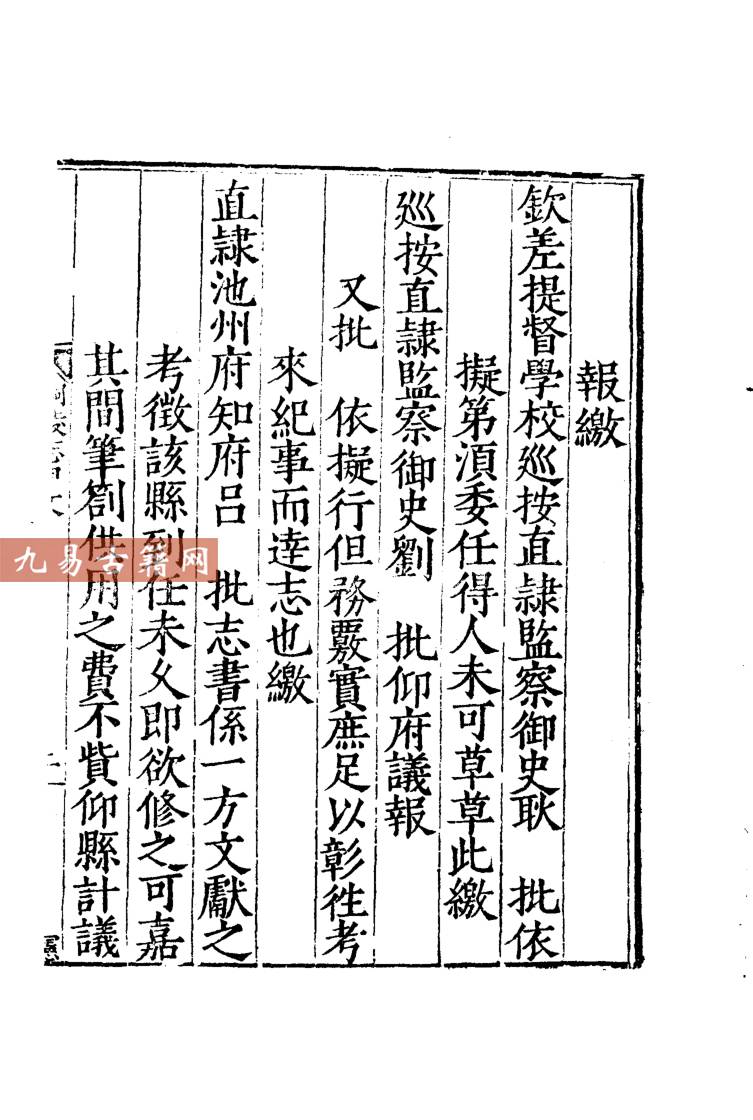 報繳
欽差提督學校廵按直隷監察御史耿　批依
擬第湏委任得人未可草草此繳
廵按直隷監察御史劉　批仰府議報
又批　依擬行但務覈實庶足以彰徃考
來紀事而逹志也繳
直隷池州府知府吕　批志書係一方文獻之
考徵該縣到任未乆即欲修之可嘉
其間筆劄供用之費不貲仰縣計議
九易古籍网